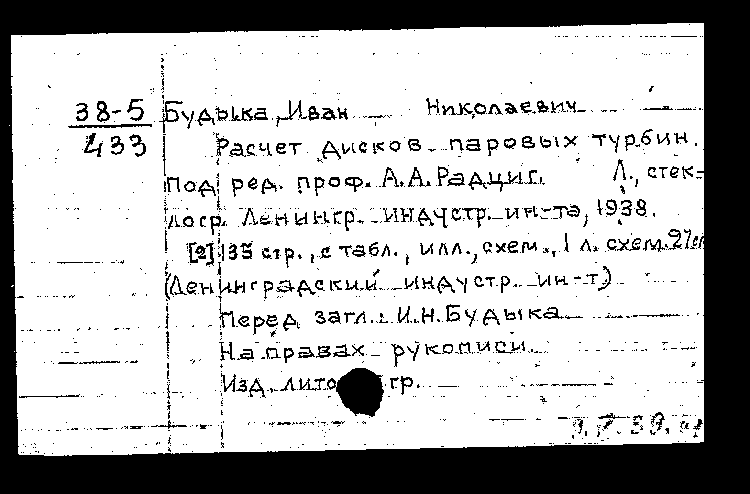 38-5 Будыка, Иван Николаевич
433 Расчет дисков паровых турбин.
Под ред. проф. А. А. Радциг. Л., стек-
логр. Ленингр. индустр. ин-та, 1938.
[2] 135 стр., с табл., илл., схем., 1 л. схем. 27см
(Ленинградский индустр. ин-т)
Перед загл.: И.Н. Будыка
На правах рукописи.
Изд. лито гр.